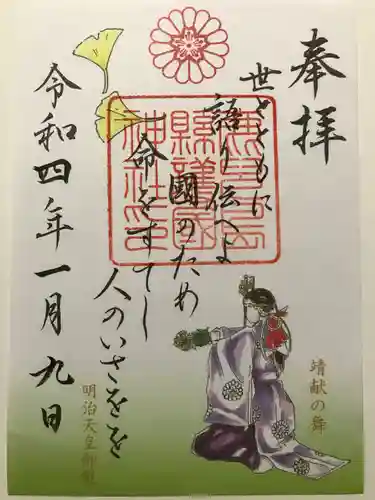 奉拝
世とともに
語り伝へよ
國のため
命をすてし
人のいさをを
令和四年一月九日
靖献の舞
明治天皇御製